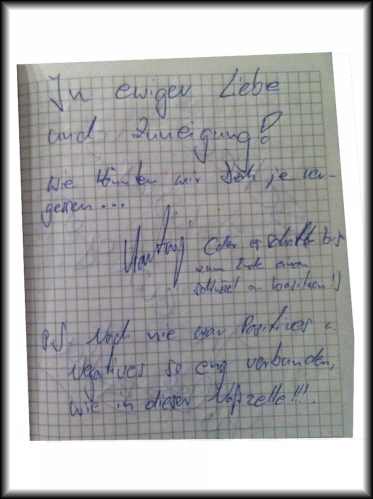 In ewiger Liebe
und Zuneigung!
Wie könnten wir Dich je ver-
gessen...
(oder es schaffte bis
zum Ende einen
Schlüssel zu besitzen!)
P.S. Noch nie war Positives u.
Negatives so eng verbunden,
wie in dieser!!!